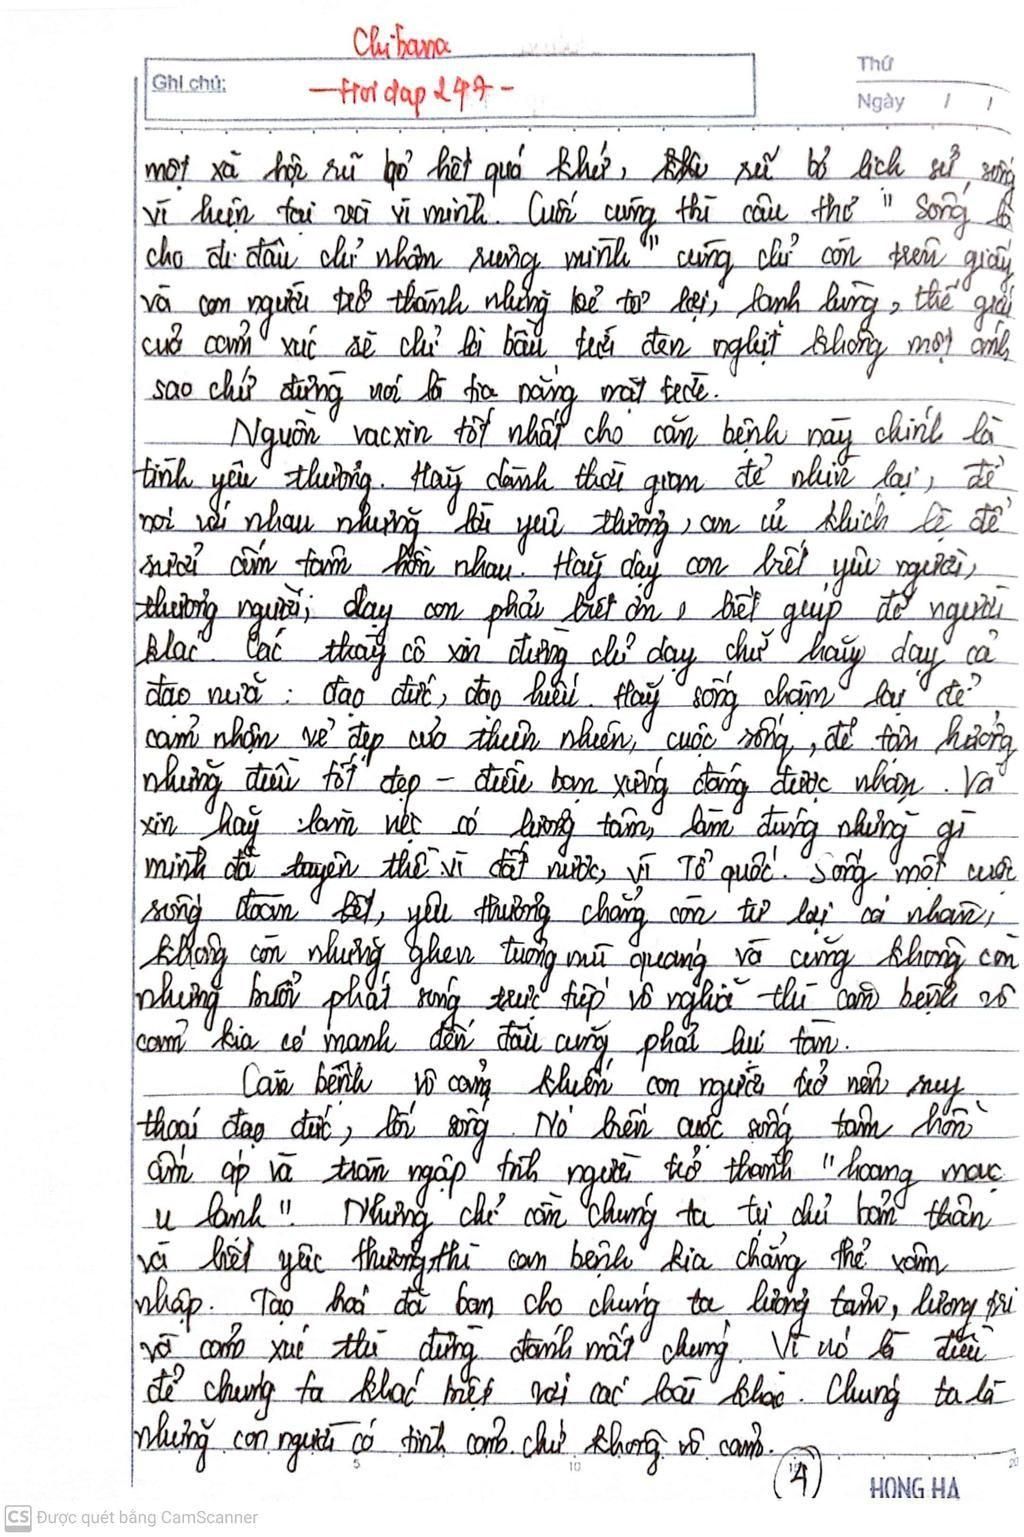 Chibana
Ghi chú:
- Hoi dap 247 -
Thứ
Ngày / /
một xã hội rũ bỏ hết quá khứ, rũ bỏ lịch sử, sống
vì hiện tại và vì mình. Cuối cùng thì câu thơ "Sống là
cho đi đâu chỉ nhận riêng mình" cũng chỉ còn trên giấy
và con người trở thành những kẻ tư lợi, lạnh lùng, thế giới
của cảm xúc sẽ chỉ là bầu trời đen nghịt không một ánh
sao chứ đừng nói là tia nắng mặt trời.
Nguồn vacxin tốt nhất cho căn bệnh này chính là
tình yêu thương. Hãy dành thời gian để nhìn lại, để
nói với nhau những lời yêu thương, an ủi khích lệ để
sưởi ấm tâm hồn nhau. Hãy dạy con biết yêu người,
thương người; dạy con phải biết ơn, biết giúp đỡ người
khác. Các thầy cô xin đừng chỉ dạy chữ hãy dạy cả
đạo nữa: đạo đức, đạo hiếu. Hãy sống chậm lại để
cảm nhận vẻ đẹp của thiên nhiên, cuộc sống, để tận hưởng
những điều tốt đẹp - điều bạn xứng đáng được nhận. Và
xin hãy làm việc có lương tâm, làm đúng những gì
mình đã tuyên thề vì đất nước, vì Tổ quốc. Sống một cuộc
sống đoàn kết, yêu thương chẳng còn tư lợi cá nhân,
không còn những ghen tuông mù quáng và cũng không còn
những buổi phát sóng trực tiếp vô nghĩa thì căn bệnh vô
cảm kia có mạnh đến đâu cũng phải lụi tàn.
Căn bệnh vô cảm khiến con người trở nên suy
thoái đạo đức, lối sống. Nó biến cuộc sống tâm hồn
ấm áp và tràn ngập tình người trở thành "hoang mạc
u lạnh". Nhưng chỉ cần chúng ta tự chủ bản thân
và biết yêu thương thì căn bệnh kia chẳng thể xâm
nhập. Tạo hoá đã ban cho chúng ta lương tâm, lương tri
và cảm xúc thì đừng đánh mất chúng. Vì nó là điều
để chúng ta khác biệt với các loài khác. Chúng ta là
những con người có tình cảm chứ không vô cảm.
5 10 15 20
4
HONG HA
CS Được quét bằng CamScanner